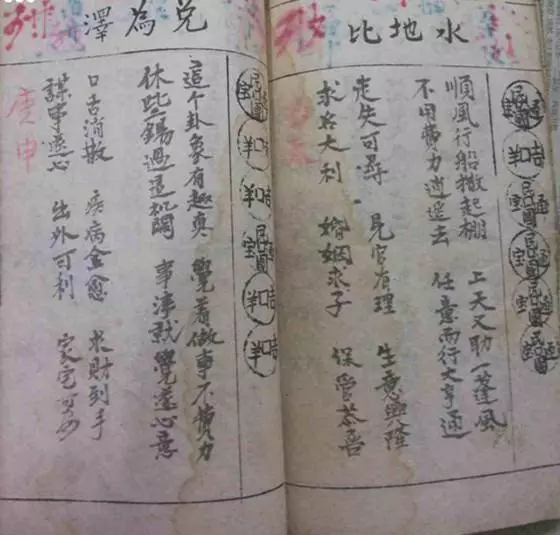 水地比
順風行船撒起棚 上天又助一蓬風
不用費力逍遥去 任意而行大亨通
走失可尋 見官有理 生意興隆
求名大利 婚姻求子 保管恭喜
兌為澤
這个卦象有趣真 覺着做事不費力
休些錫過這机関 事凖就覺遂心意
口舌消散 疾病全愈 求財到手
謀事遂心 出外可利 家宅
庚申